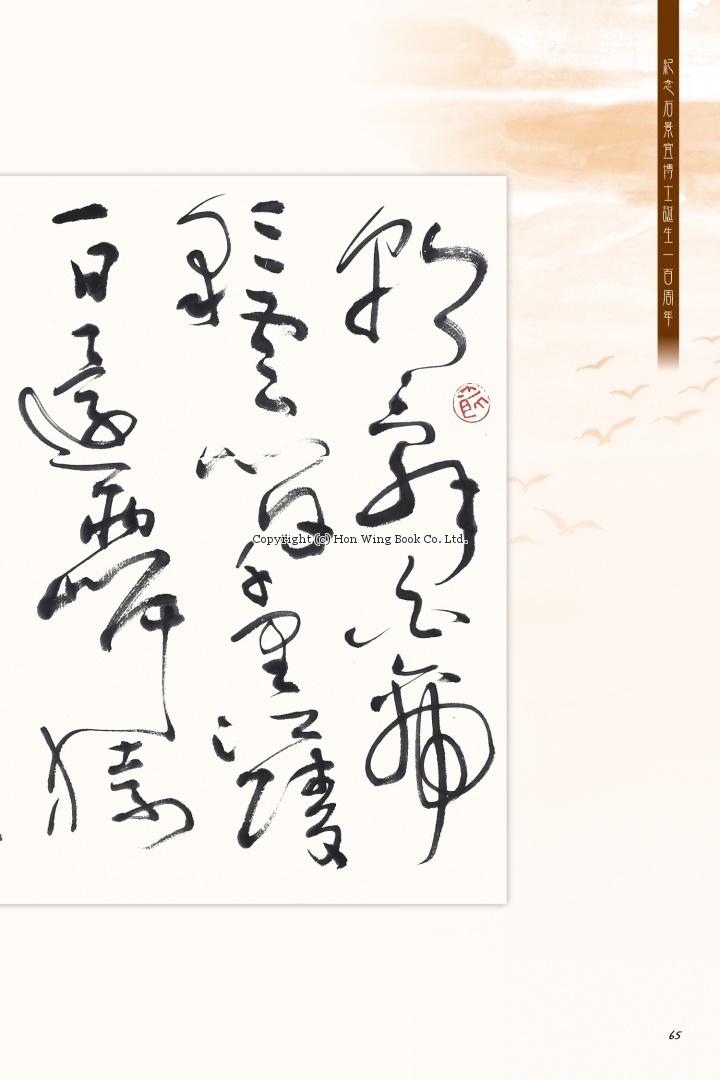 紀念石景宜博士誕生一百周年
朝辭白帝
彩雲間千里江陵
一日還兩岸猿
Copyright (c) Hon Wing Book Co. Ltd.
65